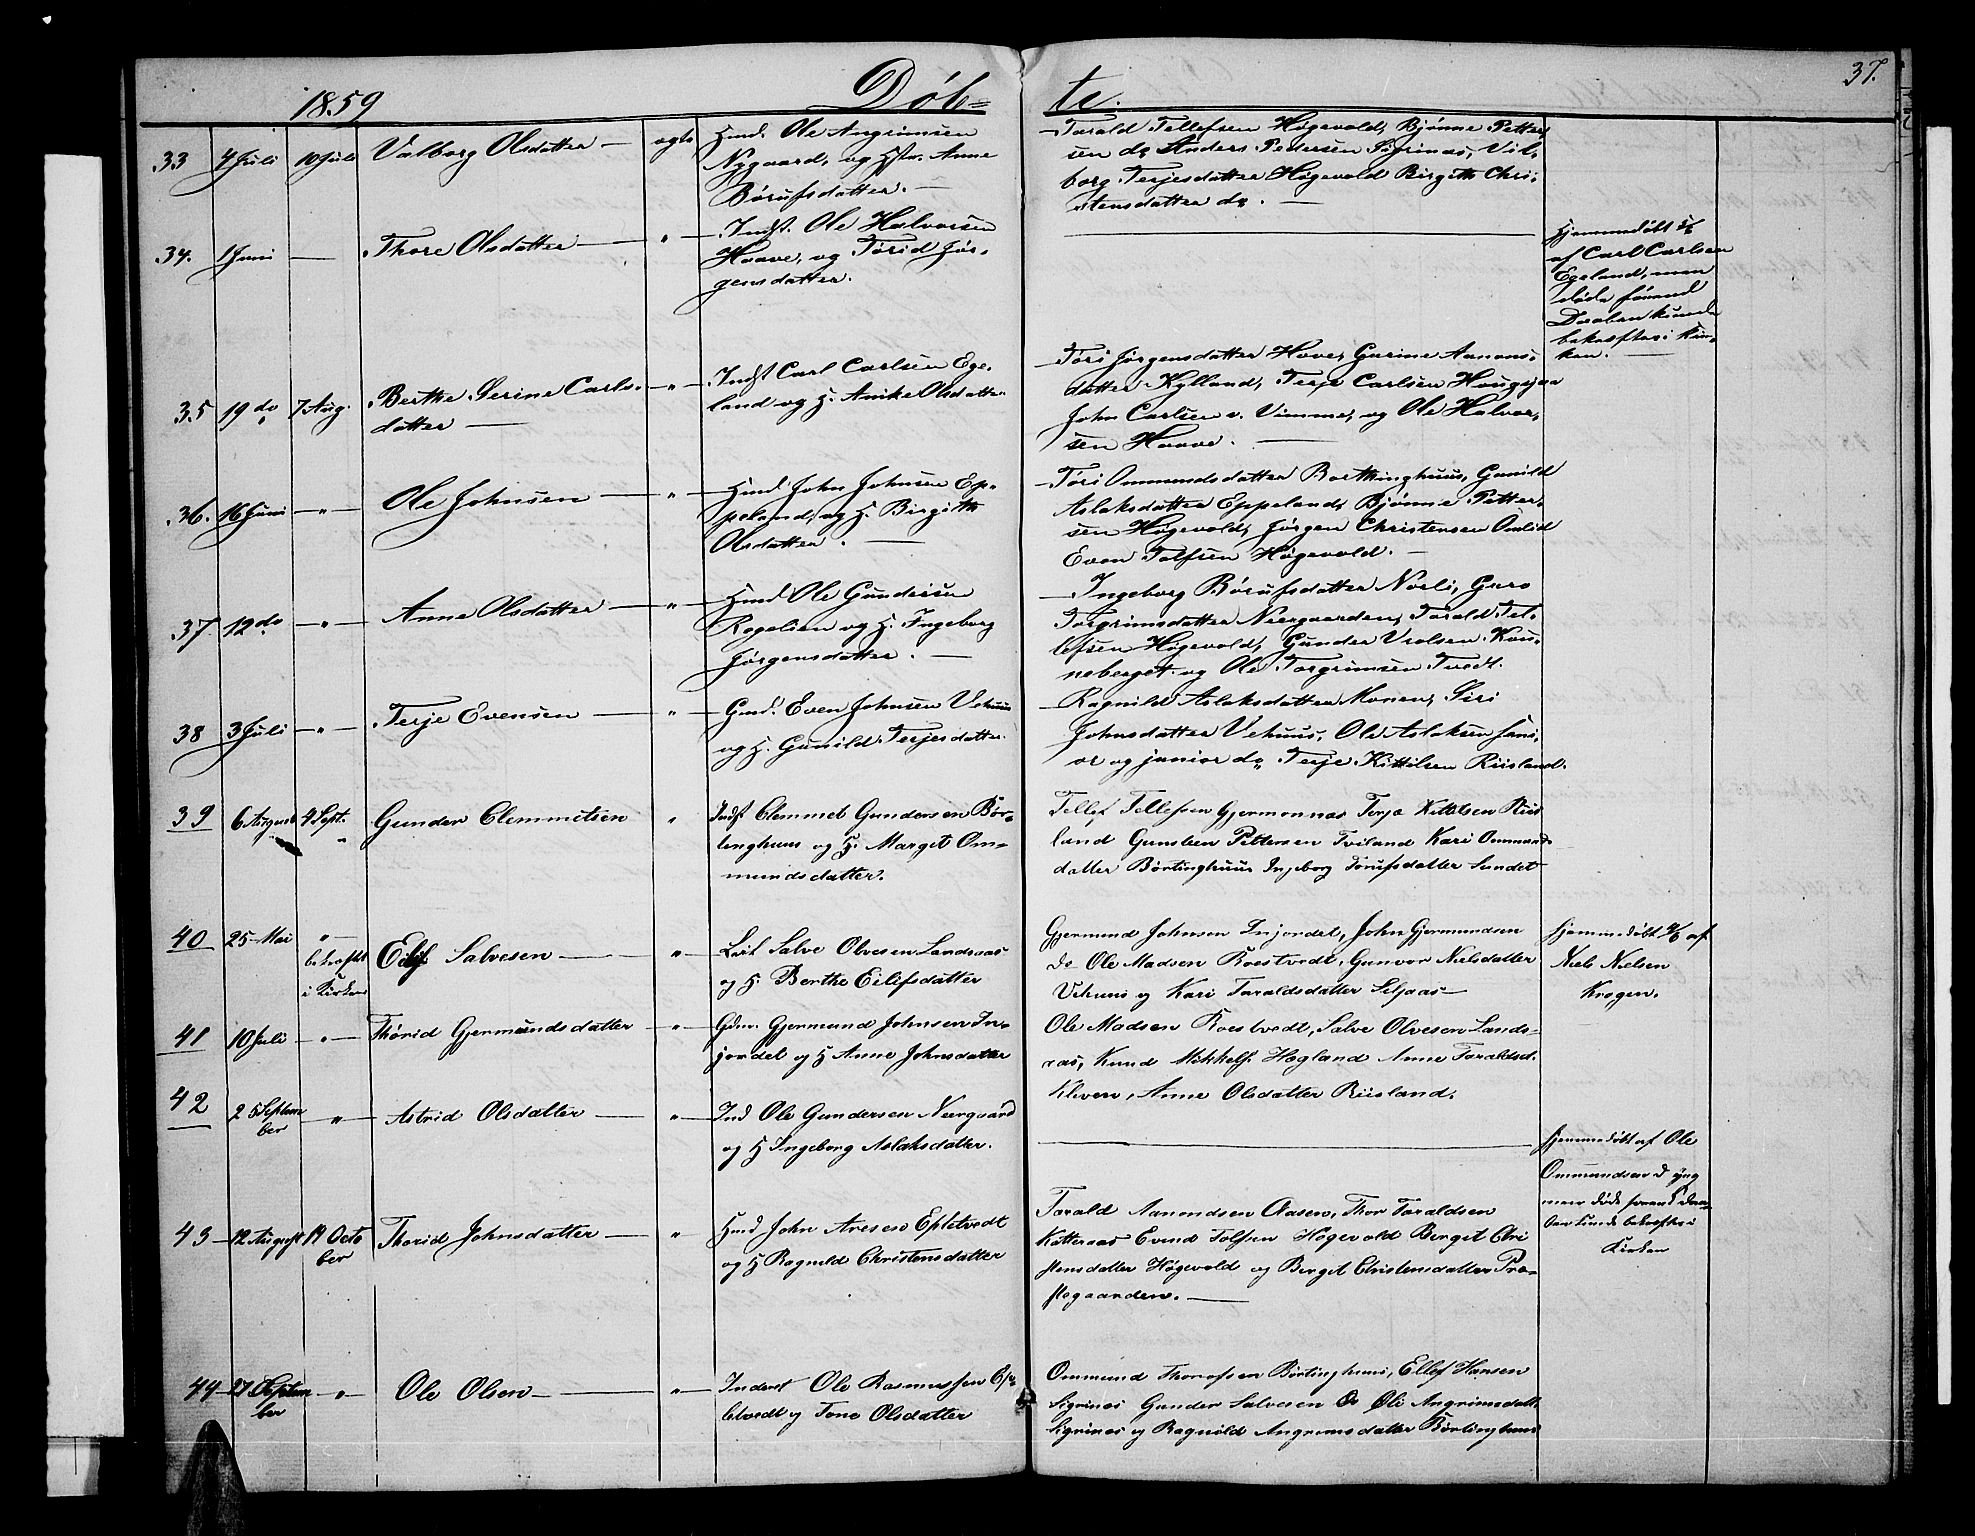 1859 Døb= te. 37.
33 4 Juli 10 Juli Valborg Olsdatter — ogts Hmd. Ole Angrimsen
Nygaard, og Hstr. Anne
Børufsdatter. —
Torald Tellefsen Høgevold, Bjønne Petter
sen do Anders Pedersen Sigrinas, Vil,
borg Terjesdatter Høgevold Birgith Chri,
stensdatter do. —
34. 1 Juni — Thore Olsdatter — " — Indst. Ole Halvorsen
Haave, og Torid Jør-
gensdatter.
Hjemmedøbt
af Carl Carlsen
Egeland, men
døde førend
Daaben kunde
bekræftes i Kir-
ken. —
35 19 do 7 Aug. Berthe Serine Carls-
datter —
" — Indst Carl Carlsen Ege-
land og H. Anike Olsdatter
Tori Jørgensdatter Hove, Gurine Aanons-
datter Kylland, Terje Carlsen Hougsjaa
John Carlsen v. Vimme, og Ole Halvor,
sen Haave. —
36. 16 Juni — " — Ole Johnsen — " — Hmd. John Johnsen Ep-
peland, og H. Birgith
Olsdatter. —
Tori Ommundsdatter Bortinghuus, Gunild
Aslaksdatter Eppeland, Bjønne Petter-
sen Høgevold, Jørgen Christensen Omlid
Even Tolfsen Høgevold. —
37 12 do — " — Anne Olsdatter — " — Hmd Ole Gundersen
Rogelien og H. Ingeborg
Jørgensdatter. —
Ingeborg Børufsdatter Norli, Guro
Torgrimsdatter Neergaarden, Torald Tel-
lefsen Høgevold, Gunder Vrolsen
neberget og Ole Torgrimsen Tvedt.
38 3 Juli — " — Terje Evensen — " — Gmd. Even Johnsen Vehuus
og H. Gunild Terjesdatter
Ragnild Aslaksdatter Monen, Siri
Johnsdatter Vehuus, Ole Aslaksen seni,
or og junior do Terje Kittilsen Riisland.
39 6 August 4 Sept. Gunder Clemmetsen " Indst Clemmet Gundersen Bør-
tinghuus og H. Margit Om-
mundsdatter.
Tellef Tellefsen Gjermonnas Terje Kittelsen Riis
land Gunsteen Pettersen Tveiland Kari Ommunds
datter Børtinghuus Ingeborg Torufsdatter Sundet
40 25 Mai " —
bekræftet
i Kirken
Eilif Salvesen — " — Leil Salve Olvesen Landsaas
og H. Berthe Eilifsdatter
Gjermund Johnsen Injordet, John Gjermundsen
do Ole Madsen Roestvedt, Gunvor Nielsdatter
Vehuus og Kari Taraldsdatter Seljaas —
Hjemmedøbt af
Niels Nielsen
Krogen.
41 10 Juli — " — Thorid Gjermundsdatter — " — Gdm. Gjermund Johnsen In-
jordet og H Anne Johnsdatter
Ole Madsen Roestvedt, Salve Olvesen Lands-
aas, Knud Mikkelsen Hogland Anne Taraldsd.
Kleven, Anne Olsdatter Riisland.
42 25 Septem
ber
— " — Astrid Olsdatter — " — Ind Ole Gundersen Neergaard
og H Ingeborg Aslaksdatter.
Hjemmedøbt af Ole
Ommundsen d yng
men døde forend Daa-
ben kunde bekræftes i
Kirken
43 — 12 August 19 Octo
ber
Thorid Johnsdatter — " Hmd John Aresen Epletvedt
og H Ragnild Christensdatter
Tarald Aamondsen Aasen, Thor Taraldsen
Katteraas Evend Tolfsen Høgevold Berget Chri
stensdatter Høgevold og Berget Christensdatter Præ-
stegaarden. —
44 — 27 Septem
ber
— " — Ole Olsen — " — Inderst Ole Rasmussen Ep-
letvedt og Tone Olsdatter
Ommund Thorofsen Børtinghuus, Ellef Hansen
Sigrinas Gunder Salvesen do Oli Angrimsdatt
Sigrinas og Ragnild Angrimsdatter Børtinghuus